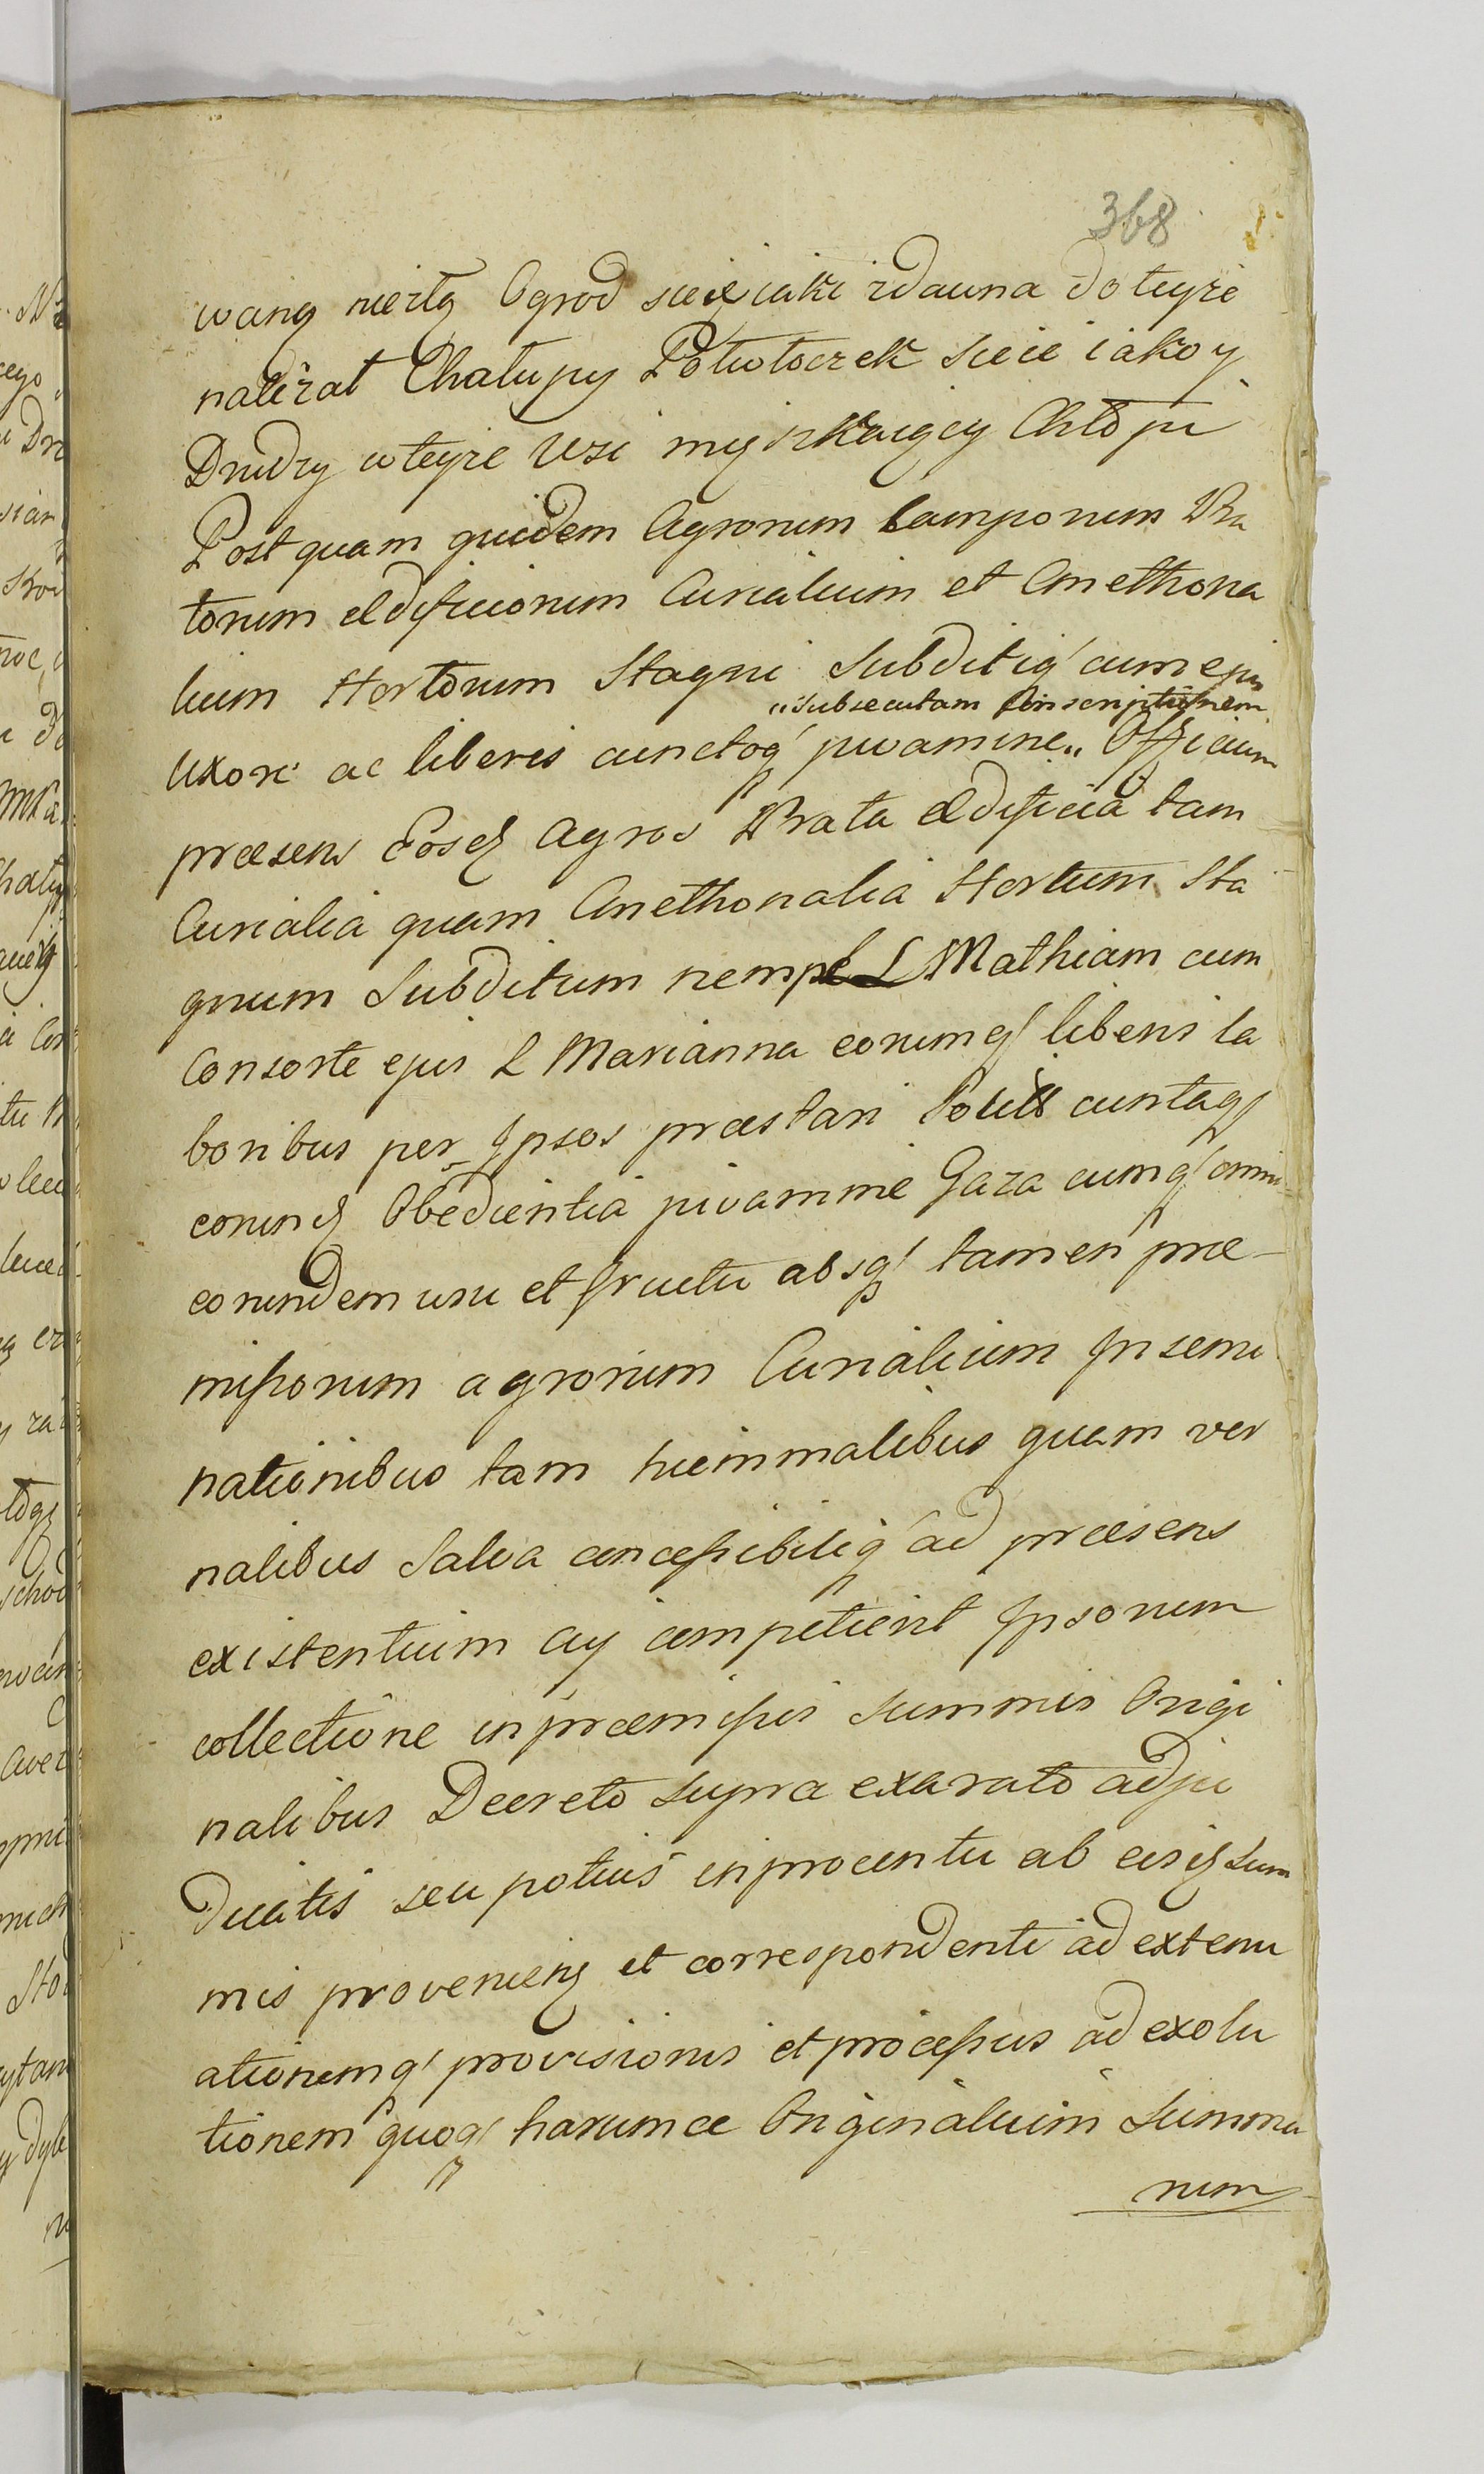 368
waną nieitą Ogrod sieie iaki zdawna do teyże
należał Chałupy Potwtoczek sieie iako y
Drudzy wteyże Wsi myszkaiący Chłopi
Post quam quidem Agrorum Camporum Pra
torum Ædificiorum Curialium et Cmethona
lium Hortorum Stagni Subditiq́ cum ejus
"subsecutam Conscriptionem
Uxore ac liberis cunctoq́ juvamine" Officium
præsens Eosq́ Agros Prata Ædificia tam
Curialia quam Cmethonalia Hortum Sta
gnum Subditum nempe L Mathiam cum
Consorte ejus L Marianna eorumq́ liberis la
boribus per Ipsos præstari solitis cunctaq́
eorunq́ Obedientia juvamine Gaza cumq́ omni
eorundem usu et fructu absq́ tamen præ-
missorum agrorum Curialium Insemi
nationibus tam hiemmalibus quam ver
nalibus Salva concessibiliq́ ad præsens
existentium cuj competierit Ipsorum
collectione in præmissis Summis Origi
nalibus Decreto supra exarato adju
dicatis seu potius in procentu ab eisq́ Sum
mis provenienq́ et correspondenti ad extenu
ationemq́ provisionis et processus ad exolu
tionem quoq́ harumce Originalium Summa
rum